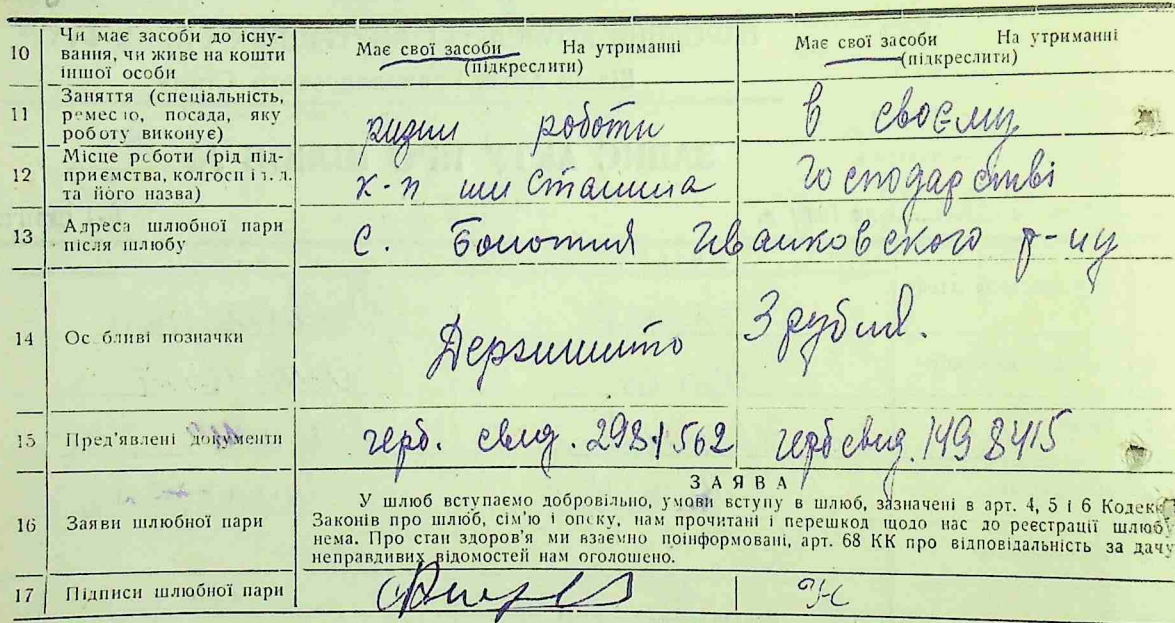 10 Чи має засоби до існування, чи живе на кошти іншої особи
Має свої засоби На утриманні
(підкреслити)
Має свої засоби На утриманні
(підкреслити)
11 Заняття (спеціальність, ремесло, посада, яку роботу виконує)
різни роботи
в своєму
12 Місце роботи (рід підприємства, колгосп і т. д. та його назва)
к-п им Сталина
господарстві
13 Адреса шлюбної пари після шлюбу
с. Болотня Іванковского р-ну
14 Особливі позначки
Держмито 3 рубля.
15 Пред'явлені документи
герб. свид. 2981562
герб свид. 149 8415
16 Заяви шлюбної пари
ЗАЯВА
У шлюб вступаємо добровільно, умови вступу в шлюб, зазначені в арт. 4, 5 і 6 Кодекс
Законів про шлюб, сім'ю і опску, нам прочитані і перешкод щодо нас до реєстрації шлюб
нема. Про стан здоров'я ми взаємно поінформовані, арт. 68 КК про відповідальність за дачу
неправдивих відомостей нам оголошено.
17 Підписи шлюбної пари